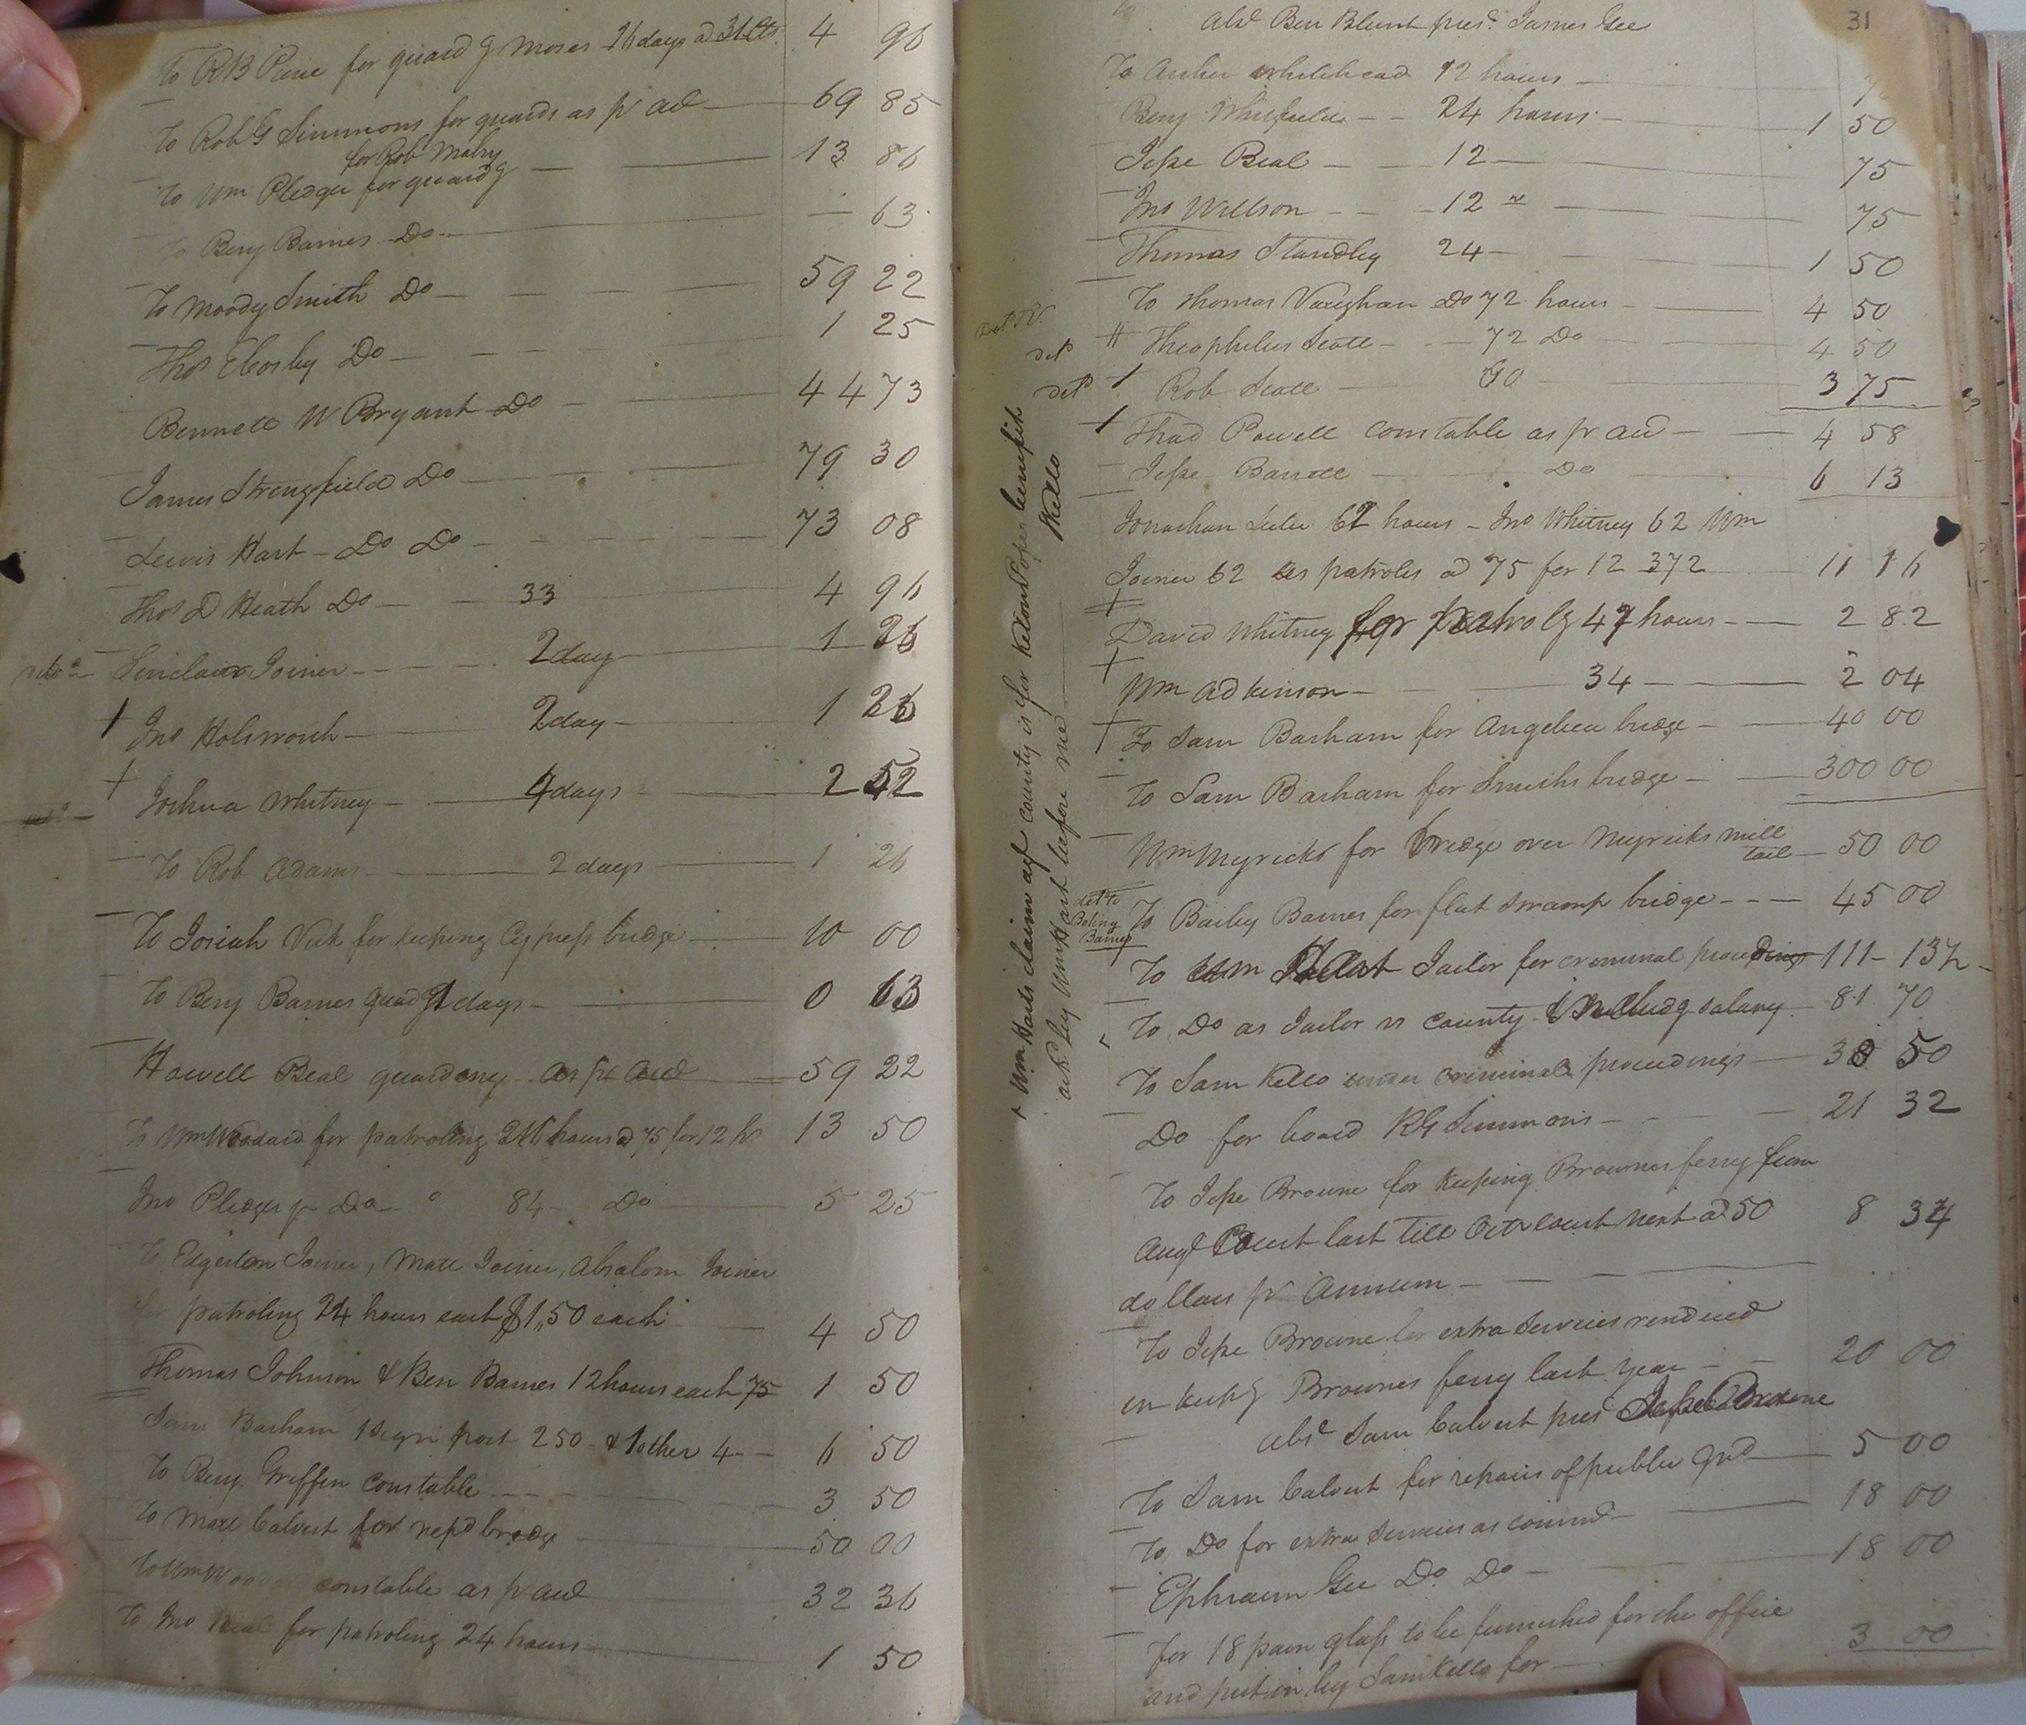 To RB Price for guardg Moses 16 days @ 31 cts 4 96
To Rob G Simmons for guards as pr acct 69 85
for Rob Mabry
To Wm Pledger for guardg 13 86
To Benj Barnes Do 63
To Moody Smith Do 59 22
Thos Cosby Do 1 25
Bennett W Bryant Do 44 73
James Stringfield Do 79 30
Lewis Hart Do Do 73 08
Thos D Heath Do 33 4 96
Sinclair Joiner 2 day 1 26
Jno Holsworth 2 day 1 26
Joshua Whitney 4 days 2 52
To Rob Adams 2 days 1 26
To Josiah Vick for keeping Cypress bridge 10 00
To Benj Barnes guardg days 0 63
Howell Beal guarding as pr acct 59 22
To Wm Woodard for patroling 216 hours @ 75 for 12 hs 13 50
Jno Pledger pr Do 84 Do 5 25
To Edgerton Joiner, Matt Joiner, Absalom Joiner
for patroling 24 hours each $1,50 each 4 50
Thomas Johnson & Ben Barnes 12 hours each 75 1 50
Sam Barham 1 sign post 2 50 & 1 other 4 6 50
To Benj. Griffin constable 3 50
To Matt Calvert for bridge 50 00
To Wm constable as pr acct 32 36
To Jno Beal for patroling 24 hours 1 50
31
Abst Ben Blunt prest James Gee
To Archer Whitehead 12 hours
Benj Whitfield 24 hours 1 50
Jesse Beal 12 75
Jno Willson 12 75
Thomas Standley 24 1 50
To Thomas Vaughan Do 72 hours 4 50
Theophilus Scott 72 Do 4 50
Rob Scott 60 3 75
Thad Powell constable as pr acct 4 58
Jesse Barrett Do 6 13
Jonathan 62 hours Jno Whitney 62 Wm
Joiner 62 as patroles @ 75 for 12 372 11 16
David Whitney for patrolg 47 hours 2 82
Wm Adkinson 34 2 04
To Sam Barham for Angelica bridge 40 00
To Sam Barham for Smiths bridge 300 00
Wm Myricks for bridge over Myricks mill
tail 50 00
delt to
Boling
Barnes
To Bailey Barnes for flat swamp bridge 45 00
To Wm Hart Jailor for criminal proceedings 111 13½
To Do as Jailor vs County includg salary 81 70
To Sam Kello under criminal proceedings 38 50
Do for board RG Simmons 21 32
To Jesse Browne for keeping Brownes ferry from
Augt Court last till Octr Court next @ 50 8 34
dollars pr Annum
To Jesse Browne for extra services rendered
in keepg Brownes ferry last year 20 00
abst Sam Calvert prest Jesse Browne
To Sam Calvert for repairs of public Gnd 5 00
To Do for extra services as commr 18 00
Ephraim Gee Do Do 18 00
for 18 pain glass to be furnished for the office
and put in by Sam Kello for 3 00
Wm Harts claim agt County is for benefit
ack by Wm Hart before me Kello